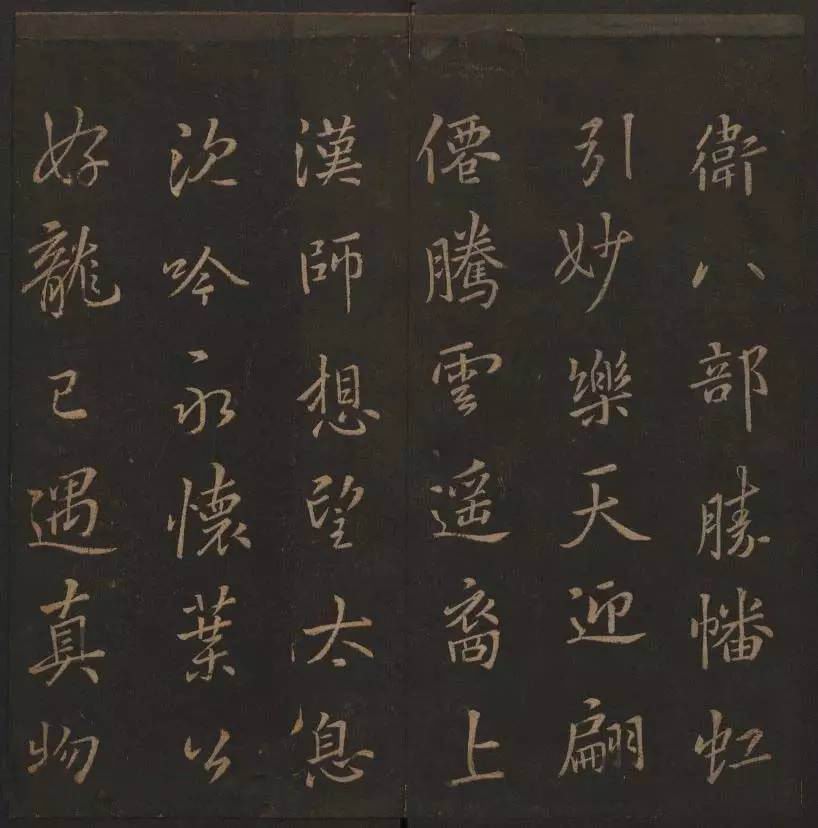 衛八部勝幡虹
引妙樂天迎翩
僊騰雲遥裔上
漢師想望太息
沉吟永懷葉公
好龍已遇真物